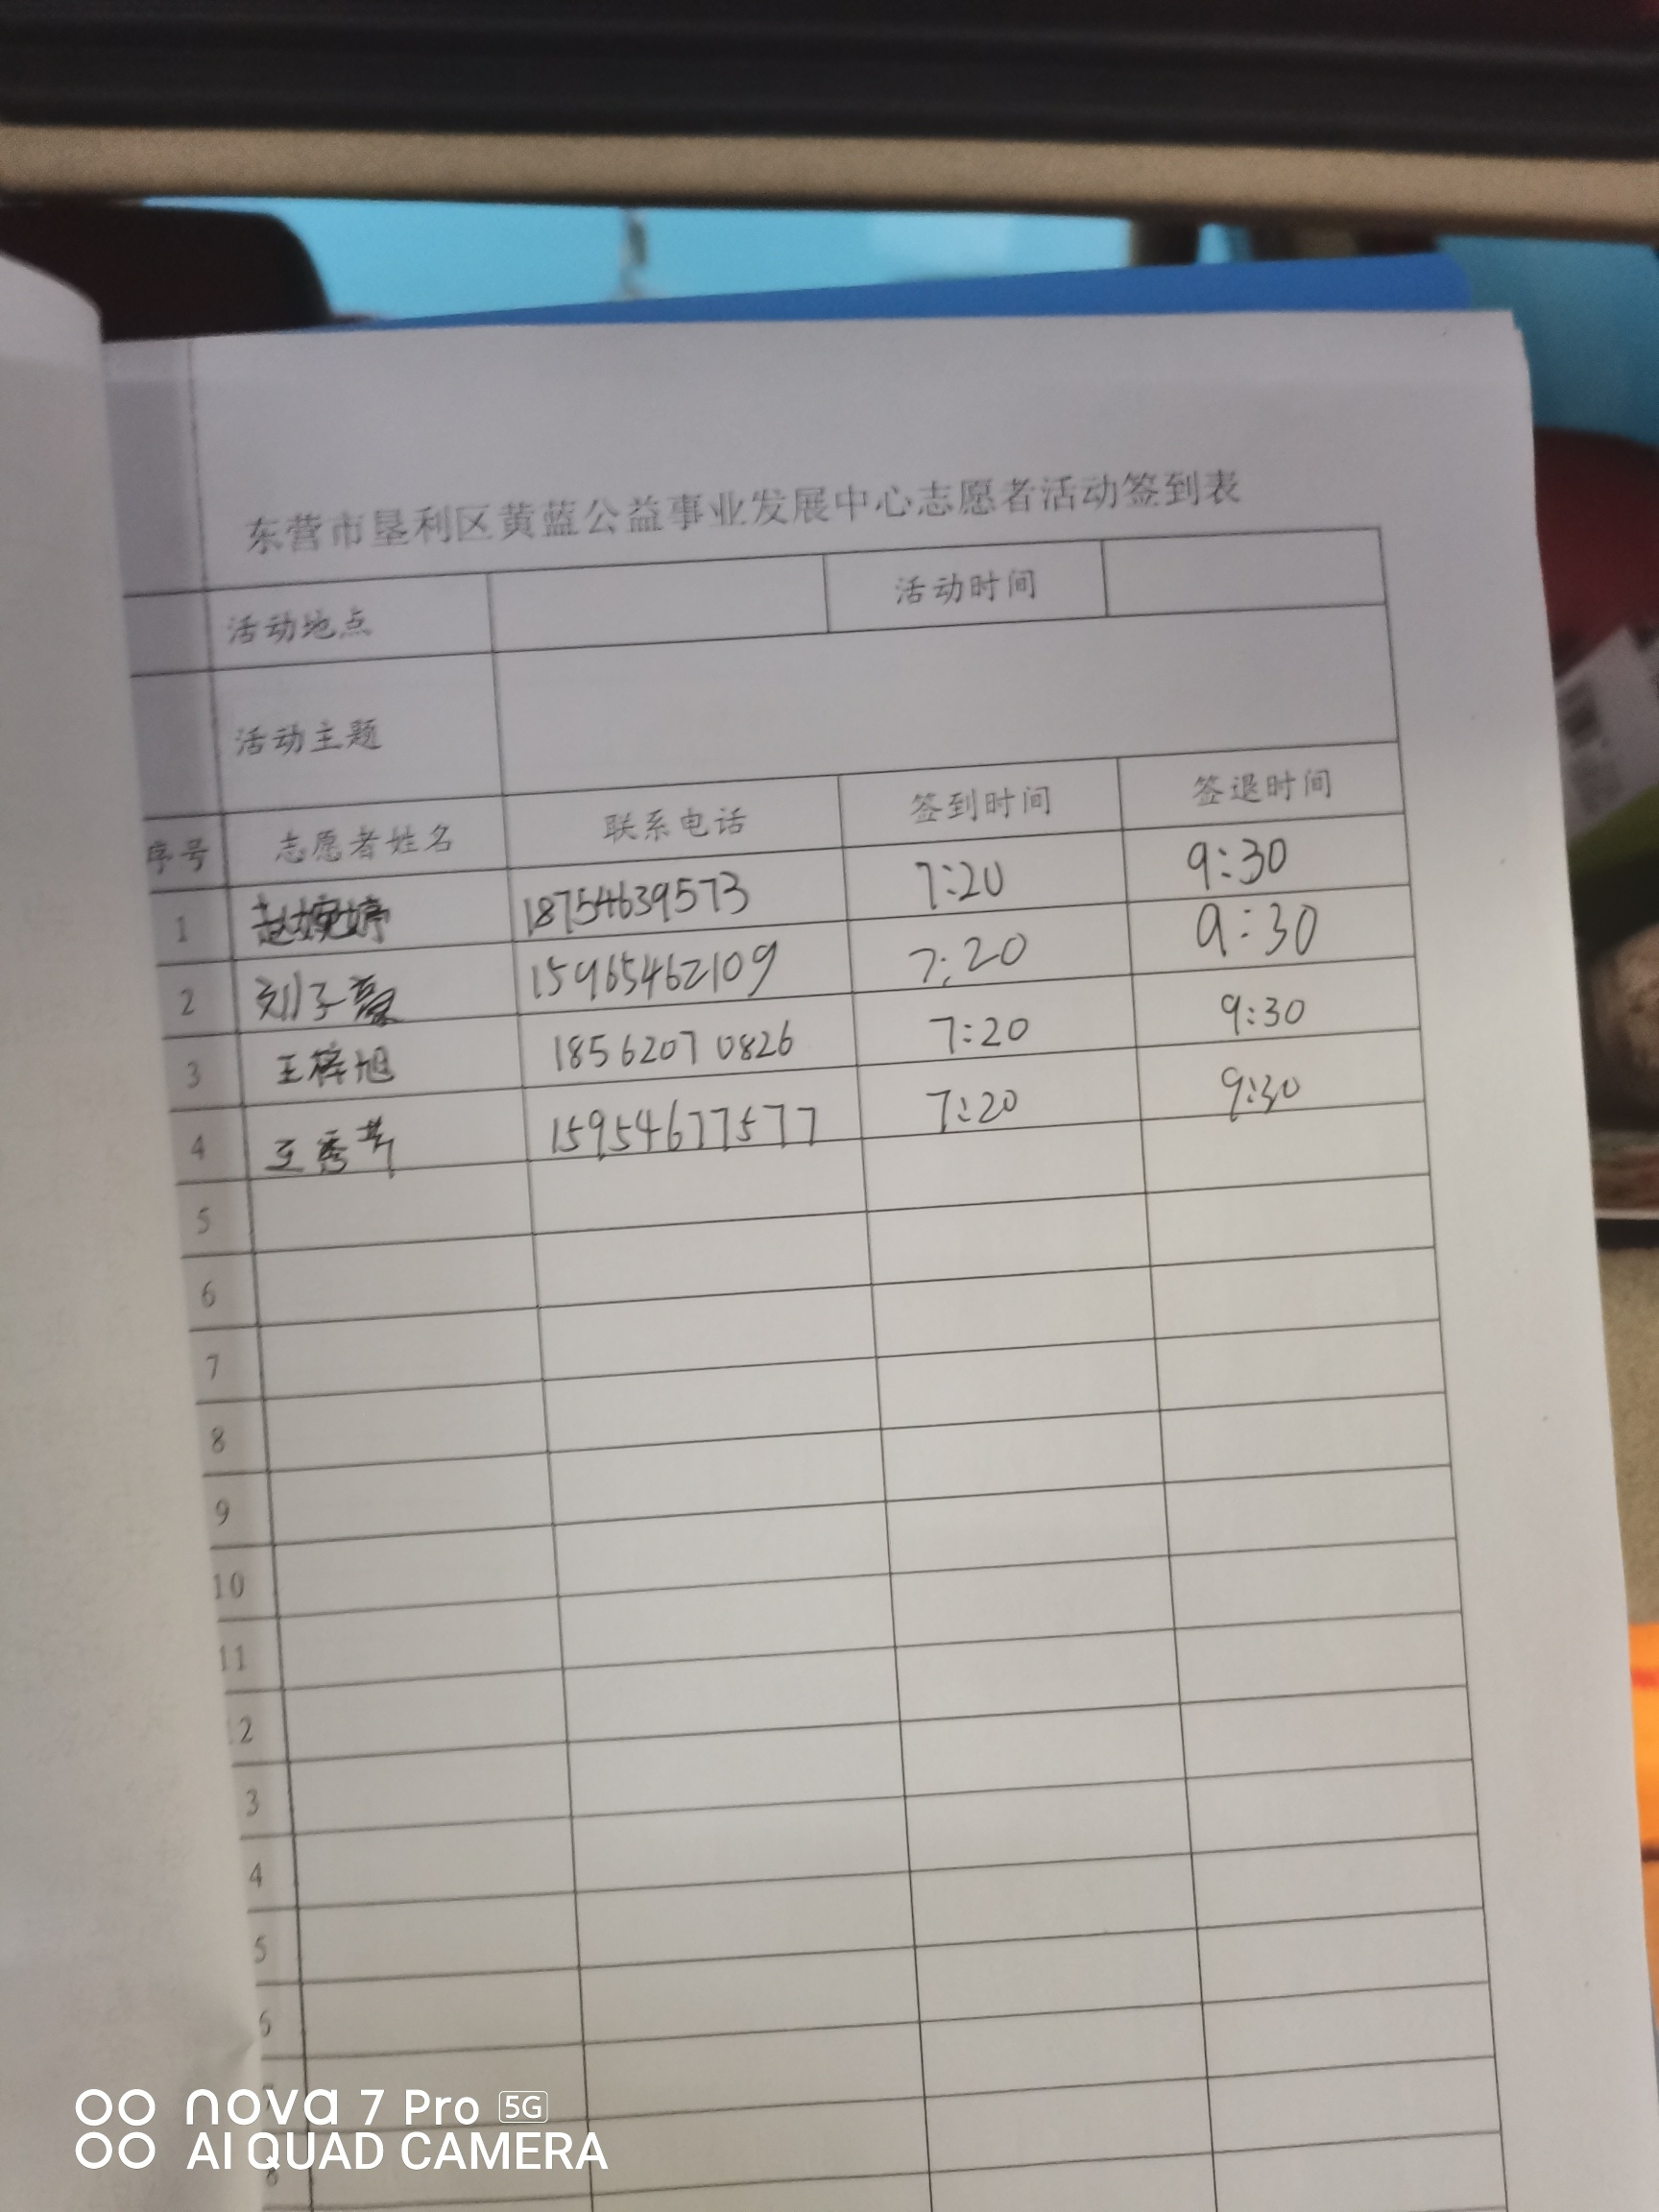 东营市垦利区黄蓝公益事业发展中心志愿者活动签到表
活动地点 活动时间
活动主题
序号 志愿者姓名 联系电话 签到时间 签退时间
1 赵婉婷 18754639573 7:20 9:30
2 刘子 15965462109 7:20 9:30
3 王梓旭 18562070826 7:20 9:30
4 王秀 15954677577 7:20 9:30
5
6
7
8
9
10
11
2
3
4
5
6
8
nova 7 Pro 5G
AI QUAD CAMERA